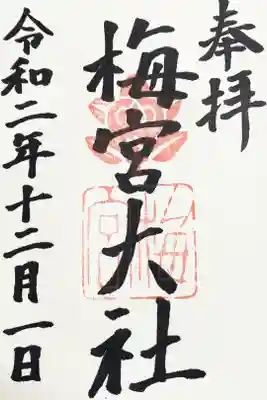 奉拝
梅宮大社
令和二年十二月一日